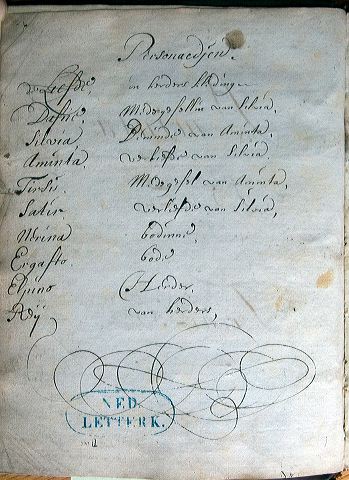 Personaedjen.
de Liefde, in herders kleding
Dafne, Medegesellin van Silvia,
Silvia, Beminde van Aminta,
Aminta, verliefde van Silvia.
Tirsis, Medegesel van Aminta,
Satir verliefde van Silvia,
Nerina bodinne,
Ergasto. bode
Elpino Herder,
Reij van herders,
NED.
LETTERK.